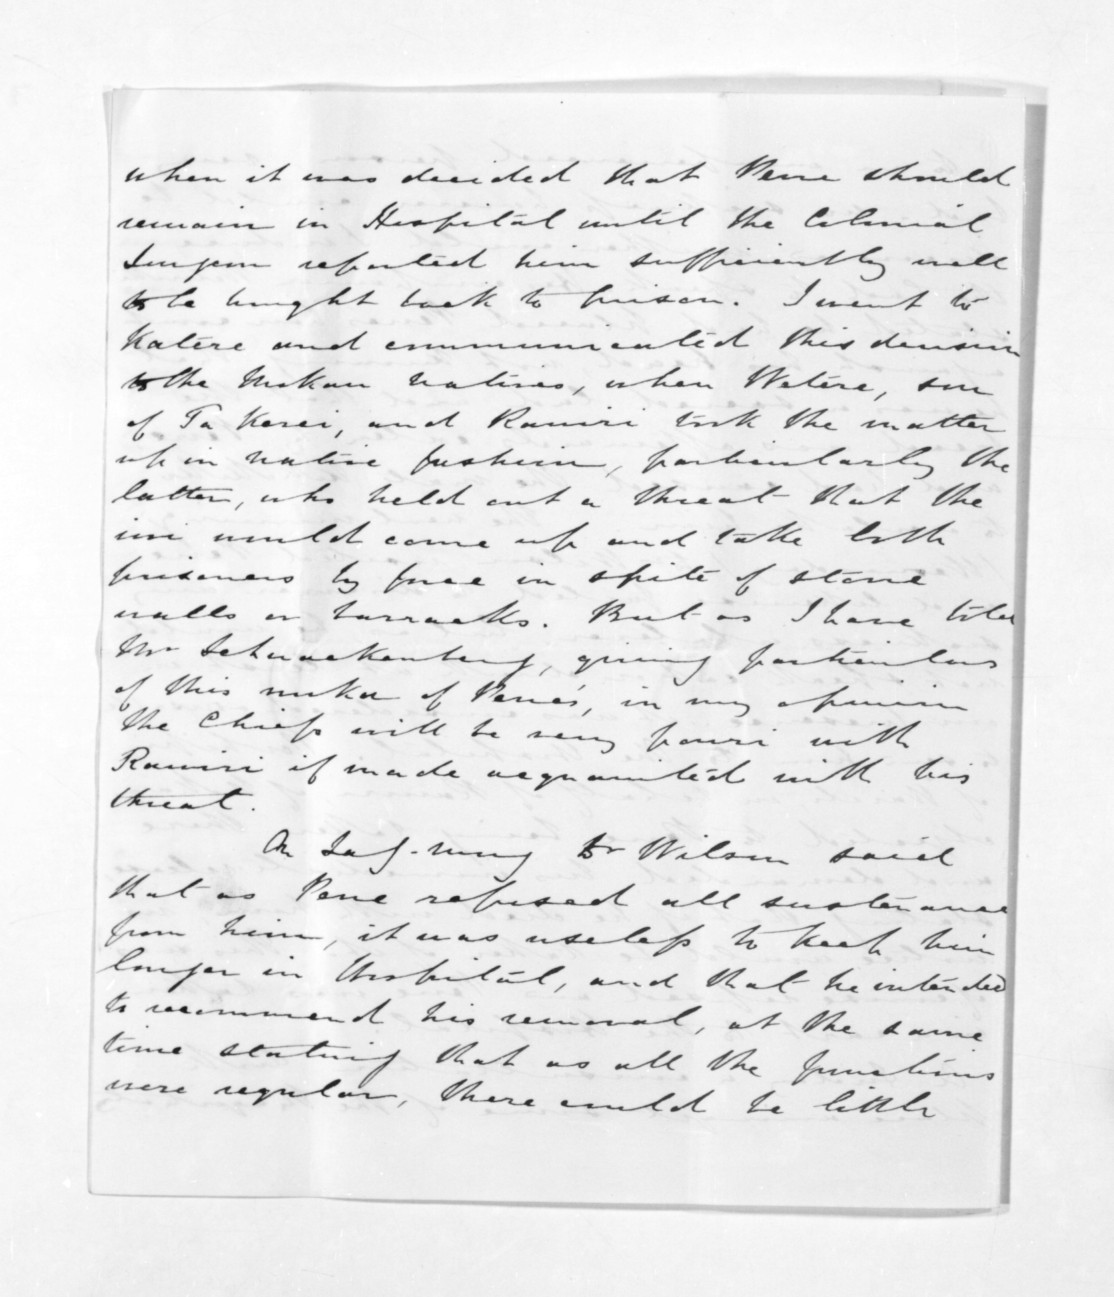 when it was decided that Pene should
remain in Hospital until the Colonial
Surgeon reported him sufficiently well
to be brought back to prison. I went to
Katere and communicated this decision
to the Mokau natives, when Wetere, son
of Ta Kerei, and Rawiri took the matter
up in native fashion, particularly the
latter, who held out a threat that the
iwi would come up and take both
prisoners by force in spite of stone
walls or barracks. But as I have told
Mr Schnackenberg, giving particulars
of this muka of Pene's, in my opinion
the Chiefs will be very pouri with
Rawiri if made acquainted with his
threat.
On Saty. morng Dr Wilson said
that as Pene refused all sustenance
from him, it was useless to keep him
longer in Hospital, and that he intended
to recommend his removal, at the same
time stating that as all the functions
were regular, there could be little